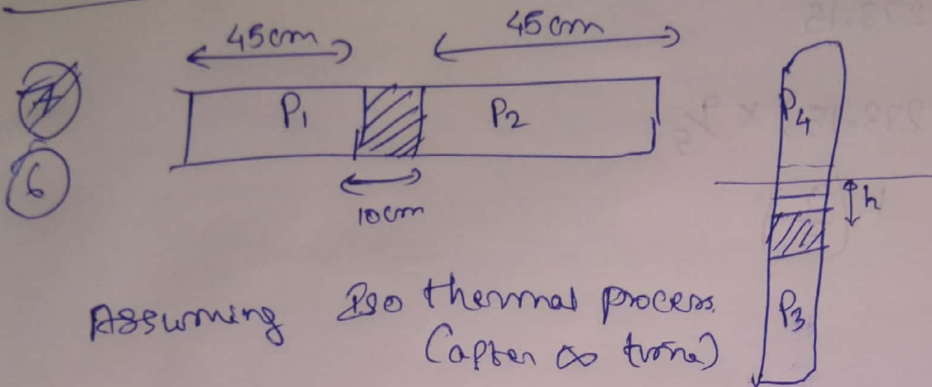 45cm 45cm
P₁ P₂
P₄
6
10cm
h
Assuming Iso thermal process
(after ∞ time)
P₃